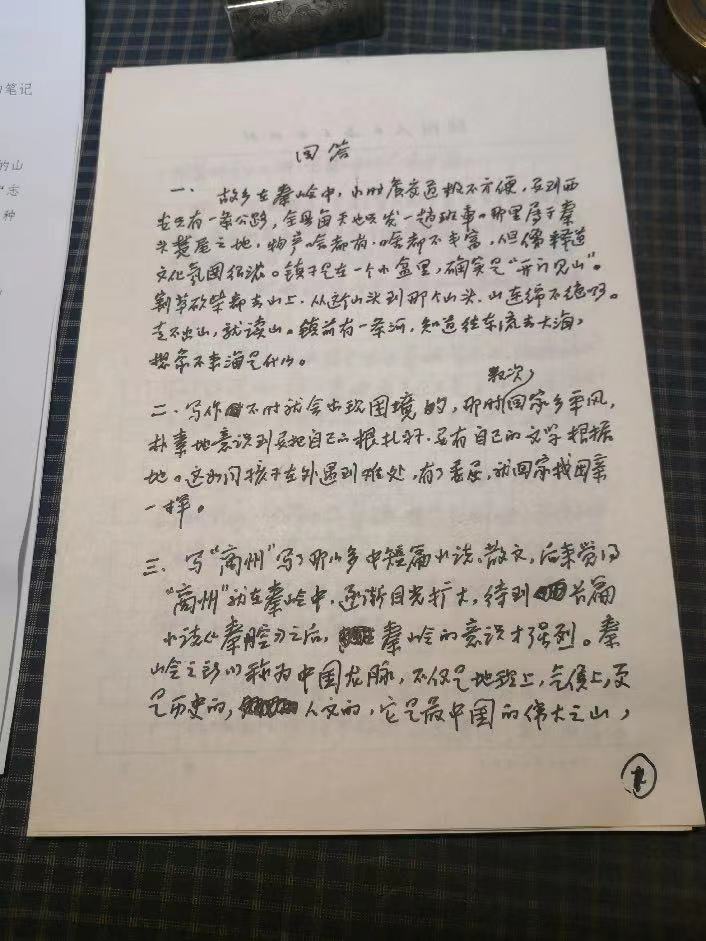 的笔记
的山
“志
种
回答
一、故乡在秦岭中，小时候交通极不方便，要到西
安只有一条公路，全县每天也只发一趟班车。那里属于秦
头楚尾之地，物产啥都有，啥都不丰富，但儒释道
文化氛围很浓。镇子是在一个小盆里，确实是“开门见山”。
割草砍柴都去山上，从这个山头到那个山头，山连绵不绝啊。
走不出山，就读山。镇前有一条河，知道往东流去大海，
想象不来海是什么。
数次
二、写作不时就会出现困境的，那时回家乡采风，
朴素地意识到要把自己的根扎好，要有自己的文学根据
地。这如同孩子在外遇到难处，有了委屈，就回家找母亲
一样。
三、写“商州”写了那么多中短篇小说、散文，后来觉得
“商州”就在秦岭中，逐渐目光扩大，待到长篇
小说《秦腔》之后，秦岭的意识才强烈。秦
岭之所以称为中国龙脉，不仅是地理上，气候上，更
是历史的，人文的，它是最中国的伟大之山，
1